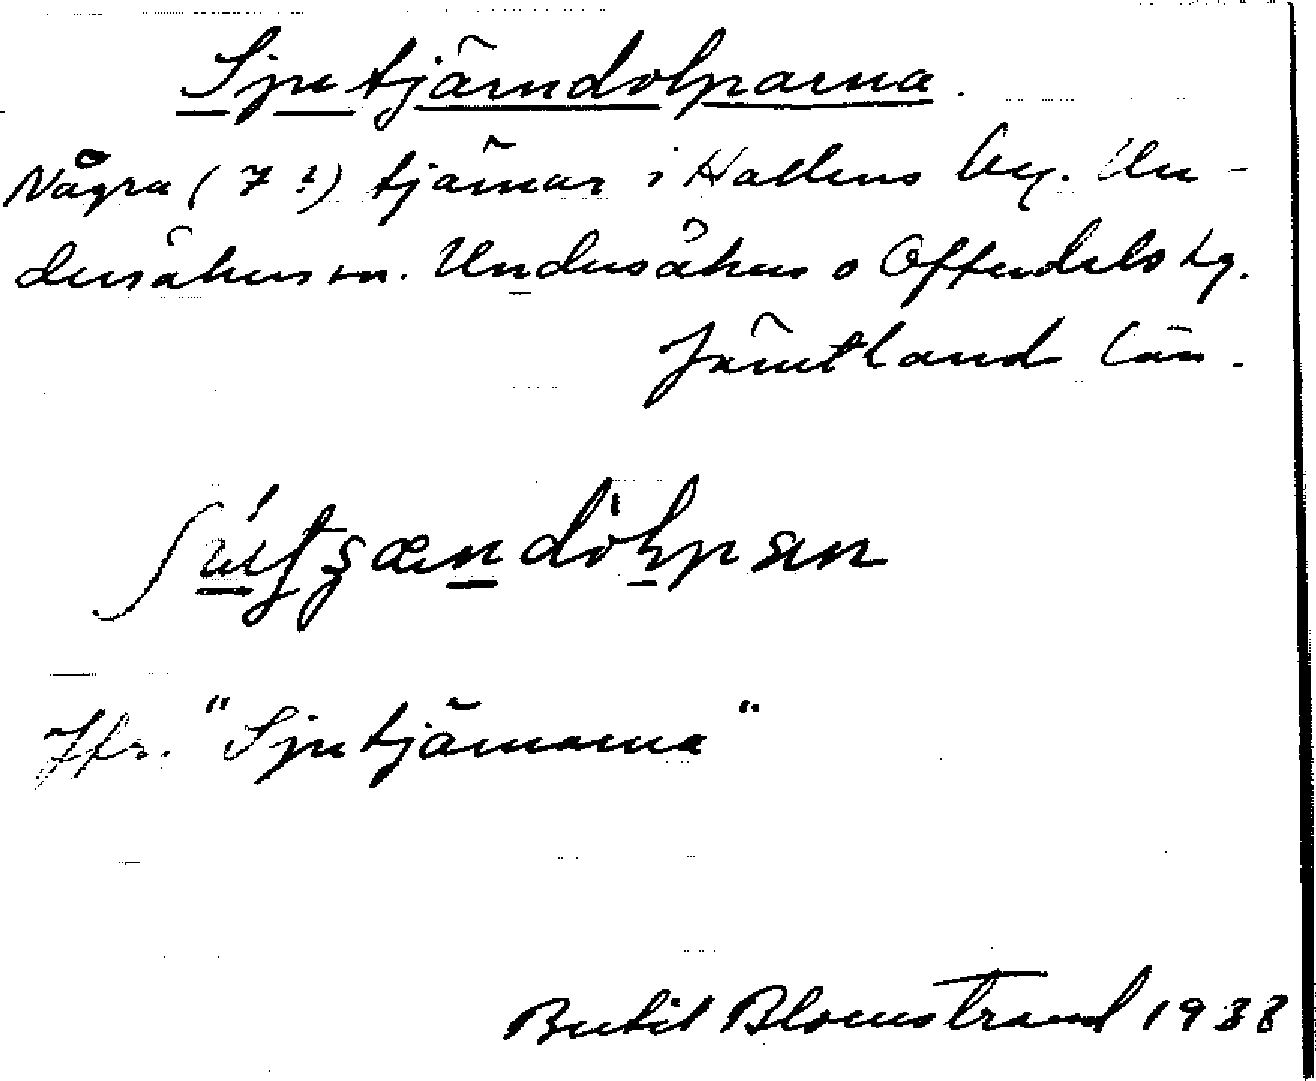 Sjutjärndolparna.
Några (7?) tjärnar i Hallens by. Un-
dersåkers sn. Undersåkers o Offerdals tg.
Jämtland län.
Jfr. "Sjutjärnarna"
Bertil Blomstrand 1938